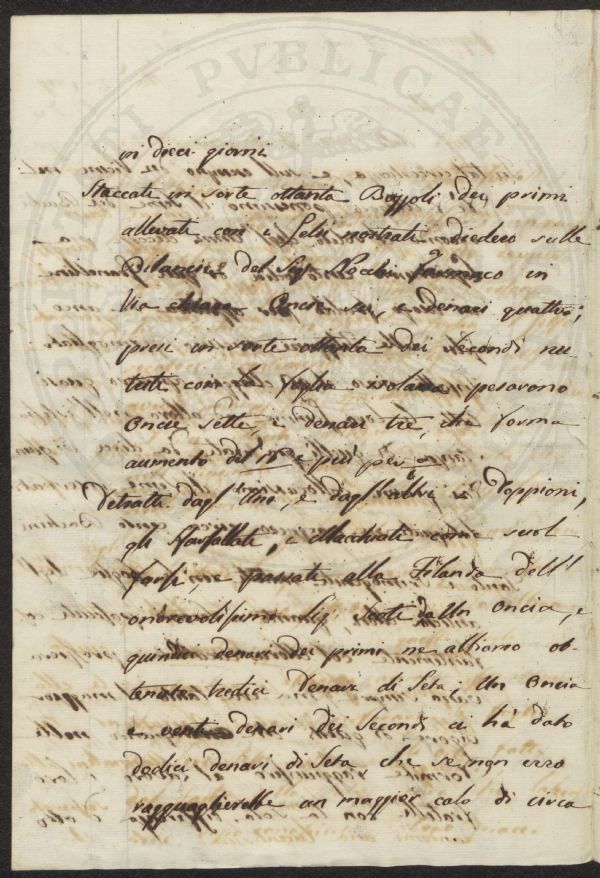 PVBLICAE
in dieci giorni
Staccate in sorte ottanta Bozzoli dei primi
allevati con i Gelsi nostrati diedero sulle
Bilancie del Sigr Pochi Farmaco in
Via chiara Oncie sei, e denari quattro;
presi in sorte ottanta dei secondi nu-
triti con la foglia isolana pesarono
Oncie sette, e denari tre, che forma
aumento del e più per
Detratti dagl'Uni, e dagl'altri i Doppioni,
gli sfarfallati, e Macchiati come suol
farsi, e passati alla Filanda dell'
onorevolissimo Sig. da Un Oncia, e
quindici denari dei primi ne abbiamo ot-
tenuto tredici Denari di Seta; Un Oncia
e venti denari dei secondi ci hà dato
dodici denari di Seta che se non erro
ragguaglierebbe un maggior calo di circa